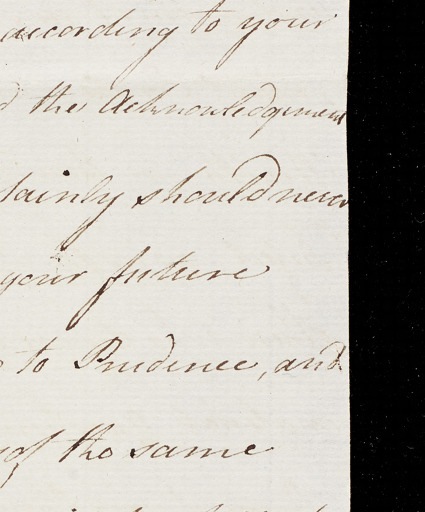 according to your
the Acknowledgment
tainly should never
your future
to Prudence, and
of the same